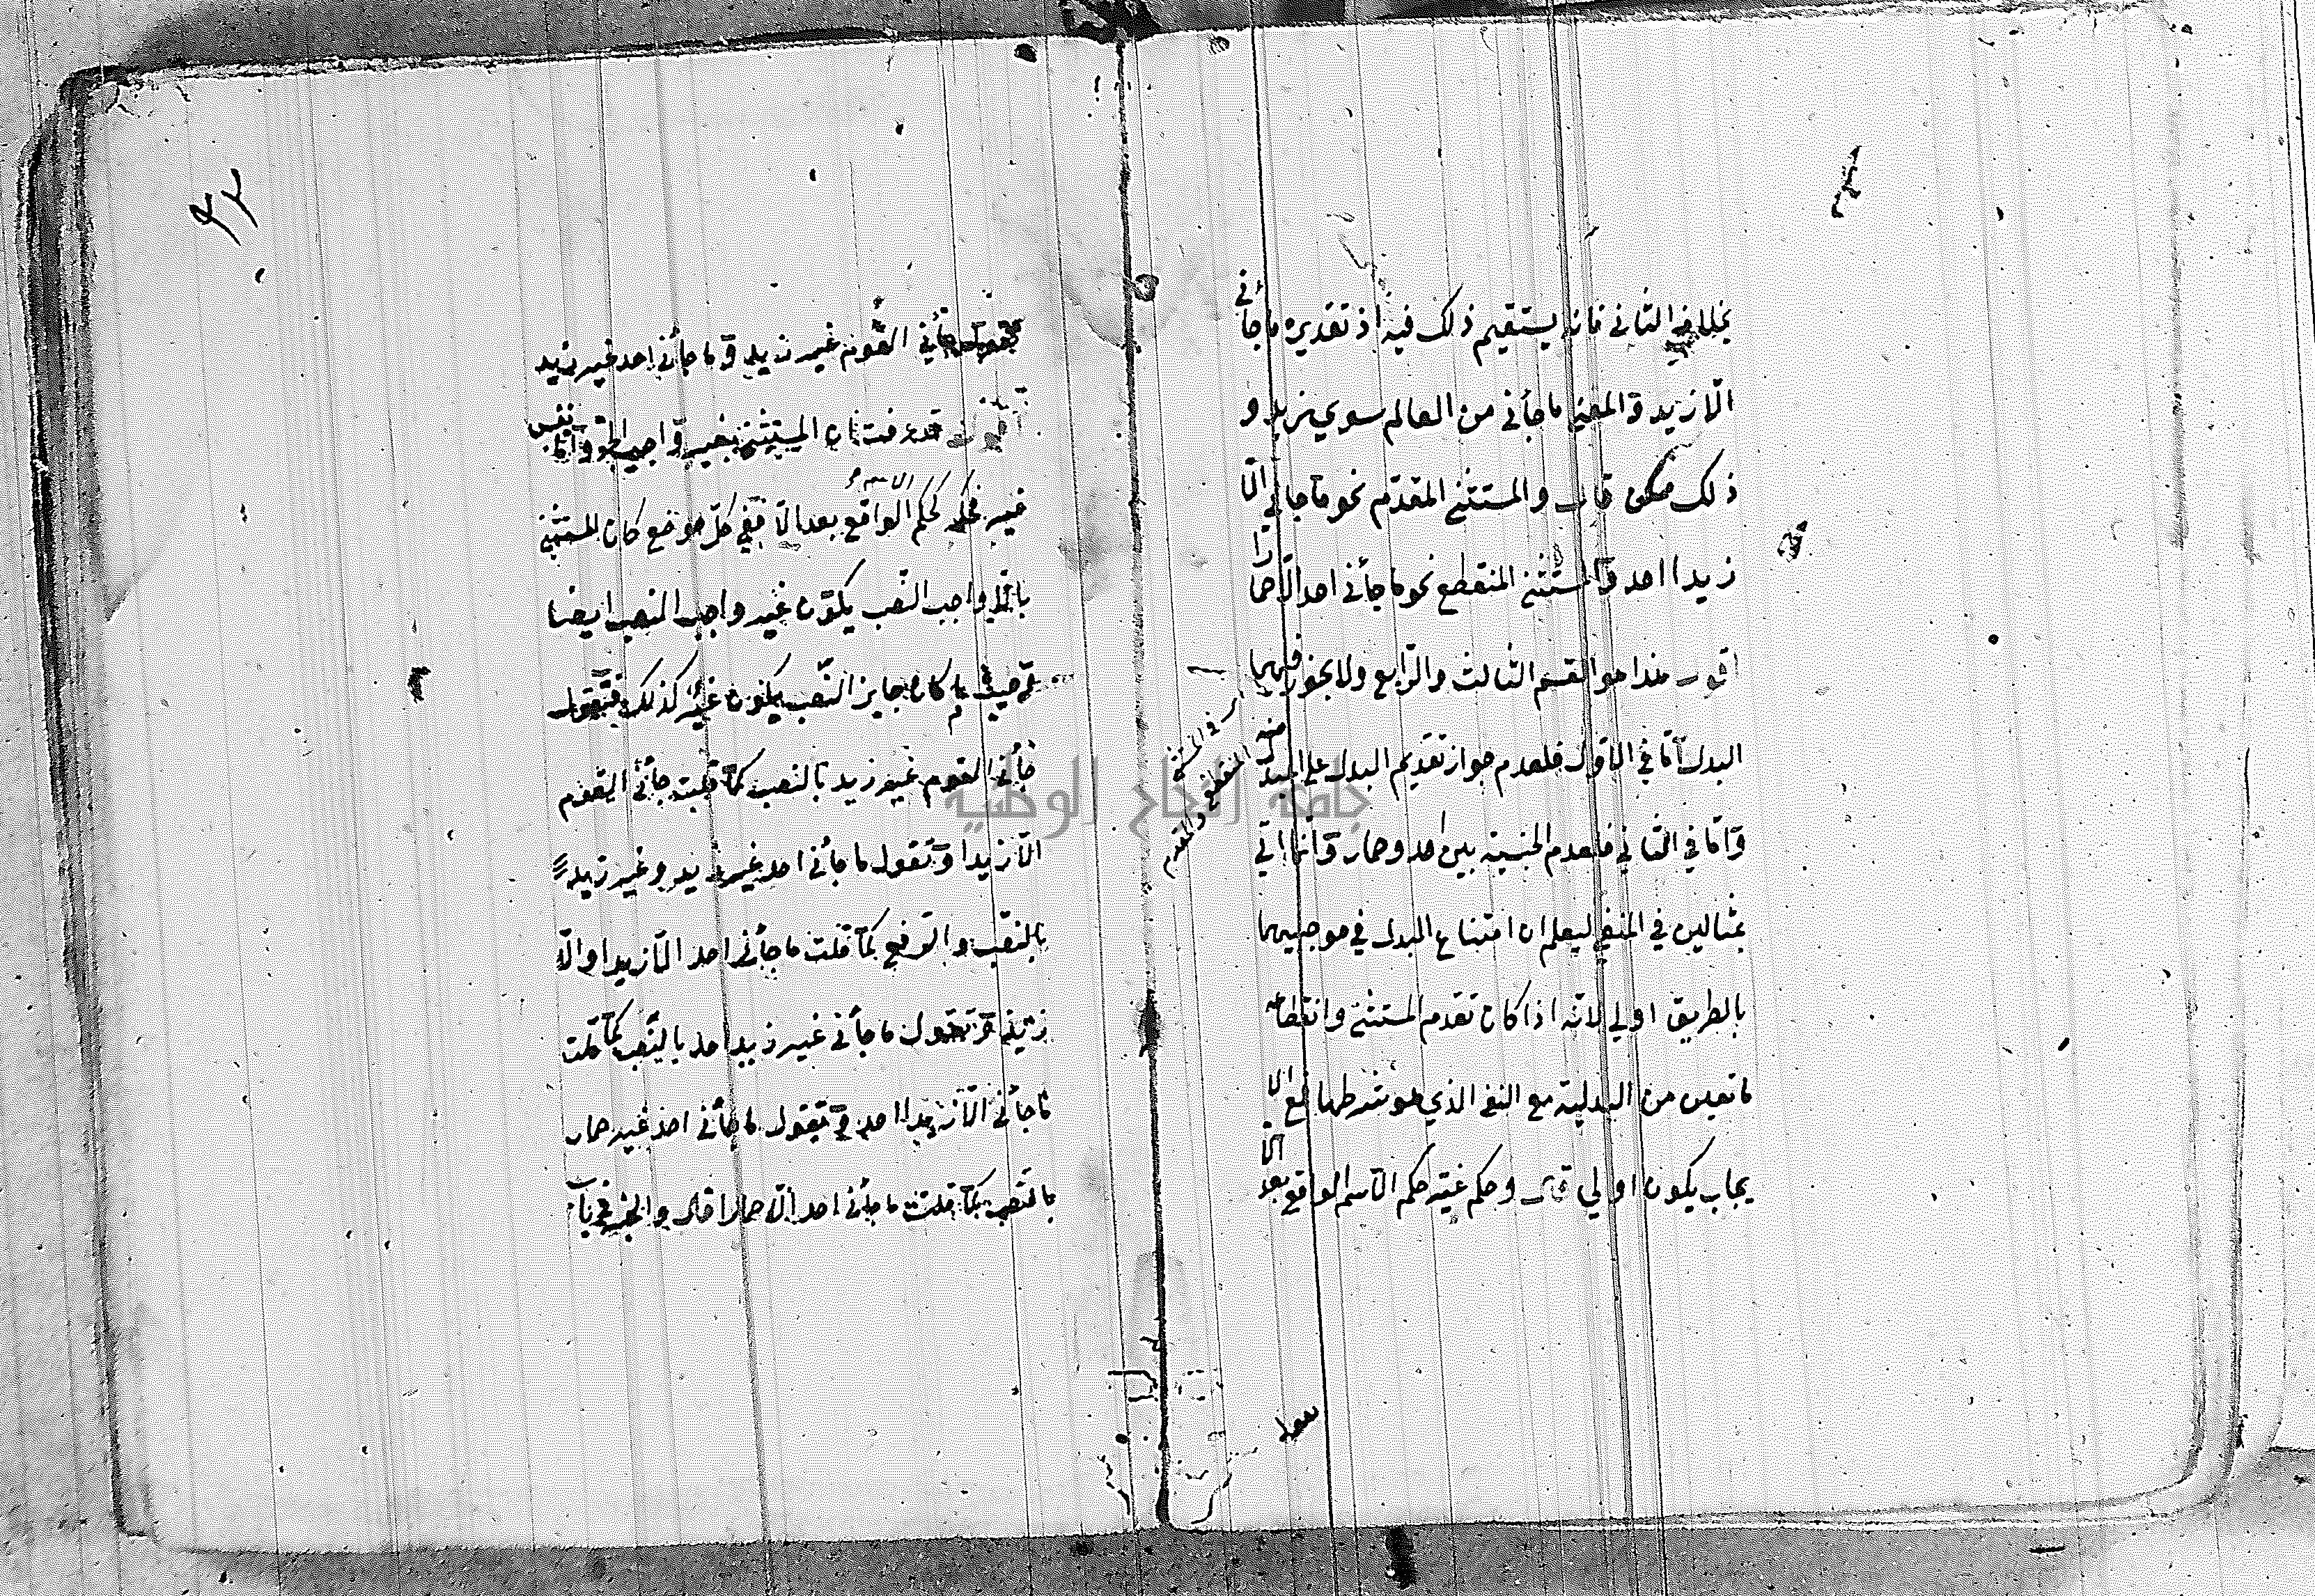 بخلاف الثاني فانه يستقيم ذلك فيه اذ تقديره ما جأني
الّا زيد والمعني ما جأني من العالم سوي زيد و
ذلك ممكن قال والمستثني المقدّم نحو ما جاني الّا
زيدا احد والمستثني المنقطع نحو ما جأني احد الّا حمارا
اقول هذا هو القسم الثالث والرّابع ولا يجوز فيهما
البدل امّا في الاوّل فلعدم جواز تقديم البدل علي المبدل منه
وامّا في الثاني فلعدم الجنسية بين احد وحمار وانما اتي
بمثالين في المنفي ليعلم ان امتناع البدل في موجبيهما
بالطريق اولي لانّه اذا كان تقدم المستثني وانقطاعه
مانعين من البدلية مع النفي الذي هو شرطها فمع الا
يجاب يكون اولي قال وحكم غير حكم الاسم الواقع بعد الّا
في المستثني
المنقطع والمقدم
تقول
٣٢
تقول جأني القوم غير زيد وما جأني احد غير زيد
اقول قد عرفت ان المستثني بغير واجب الجرّ وامّا نفس
غير فحكمه كحكم الاسم الواقع بعد الّا ففي كلّ موضع كان المستثني
بالّا واجب النّصب يكون غير واجب النصب ايضا
وحيث ما كان جايز النّصب يكون غير كذلك فتقول
جأني القوم غير زيد بالنصب كما قلت جأني القوم
الّا زيدا وتقول ما جأني احد غير زيد وغير زيد
بالنصب والرّفع كما قلت ما جأني احد الّا زيدا والّا
زيد وتقول ما جأني غير زيد احد بالنّصب كما قلت
ما جأني الّا زيدا احد وتقول ما جأني احد غير حمار
بالنصب كما قلت ما جأني احد الّا حمارا قال والخبر في باب
جامعة النجاح الوطنية